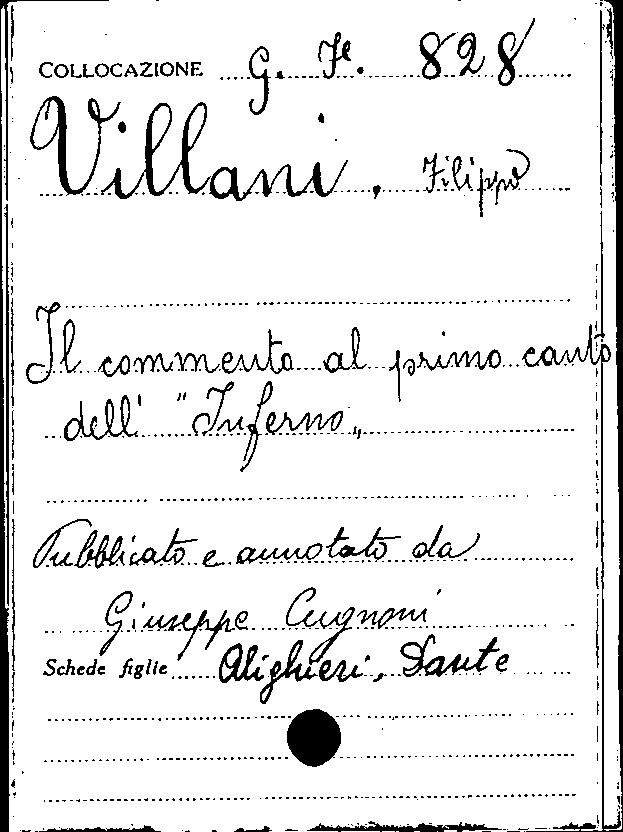 COLLOCAZIONE G. Fe. 828
Villani, Filippo
Il commento al primo canto
dell' "Inferno„
Pubblicato e annotato da
Giuseppe Cugnoni
Schede figlie Alighieri, Dante